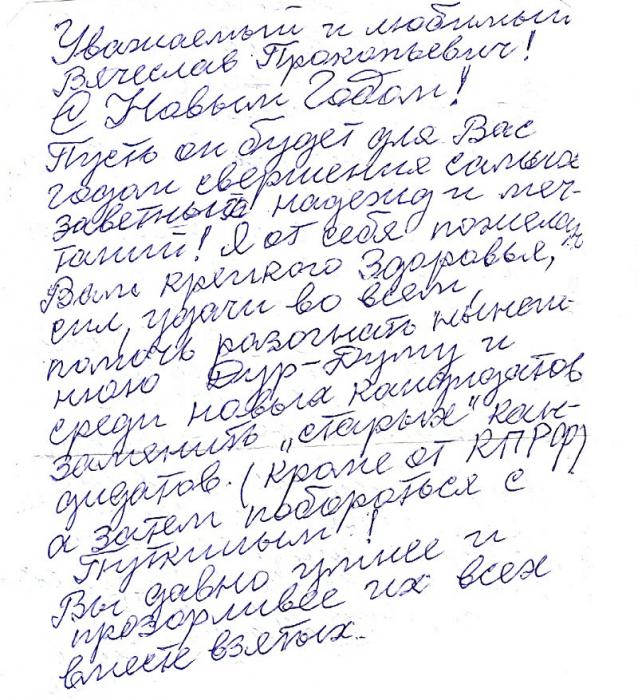 Уважаемый и любимый
Вячеслав Прокопьевич!
С Новым Годом!
Пусть он будет для Вас
годом свершения самых
заветных надежд и меч-
таний! Я от себя пожелаю
Вам крепкого здоровья,
сил, удачи во всем,
помочь разогнать нынеш-
нюю Дур-Думу и
среди новых кандидатов
заменить „старых" кан-
дидатов. (кроме от КПРФ)
а затем побороться с
Путиным!
Вы давно умнее и
прозорливее их всех
вместе взятых.